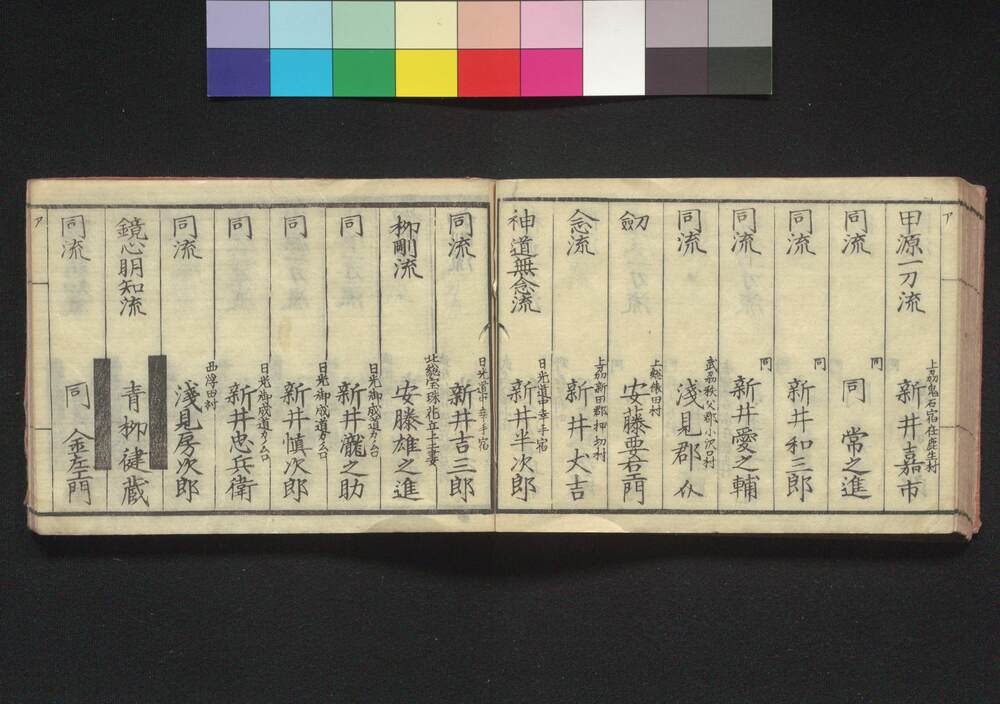 ア
甲源一刀流
上刕鬼石宿在鹿生村
新井嘉市
同流
同
同 常之進
同流
同
新井和三郎
同流
同
新井愛之輔
同流
武刕秩父郡小沢口村
淺見郡八
劔
上総俵田村
安藤要右エ門
念流
上刕新田郡押切村
新井丈吉
神道無念流
日光道中幸手宿
新井半次郎
同流
日光道中幸手宿
新井吉三郎
柳剛流
北総宝珠花在上吉妻
安藤雄之進
同
日光御成道
新井瀧之助
同
日光御成道
新井慎次郎
同
日光御成道
新井忠兵衛
同流
西浮田村
淺見房次郎
鏡心明知流
青柳健蔵
同流
同 金左エ門
ア